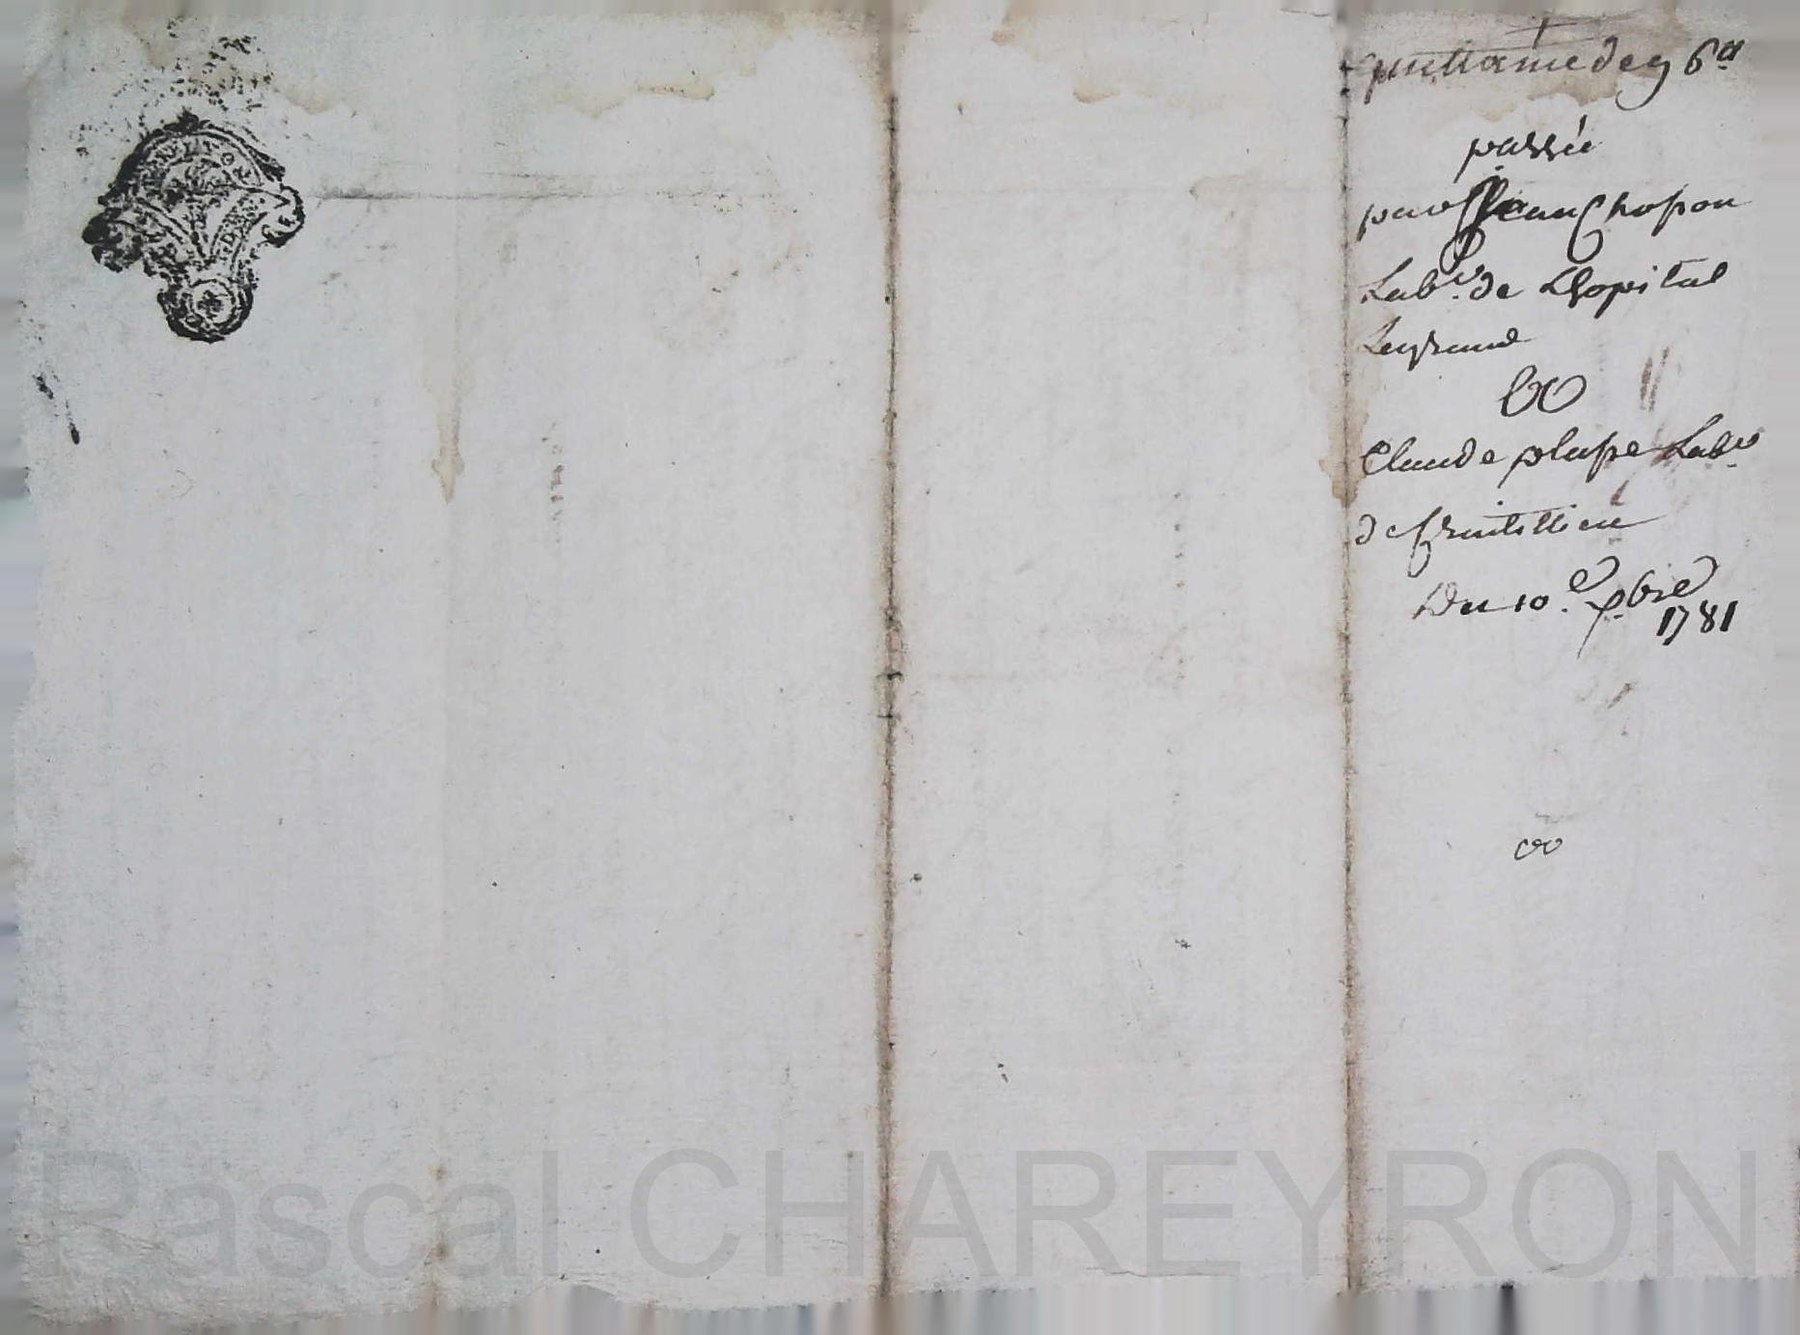 quittance de 96ll
passée
par Sr Jean Chopon
Labr. de Lhopital
Legrand
a
Claude plasse Labr
de
Du 10e. xbre
1781
Pascal CHAREYRON